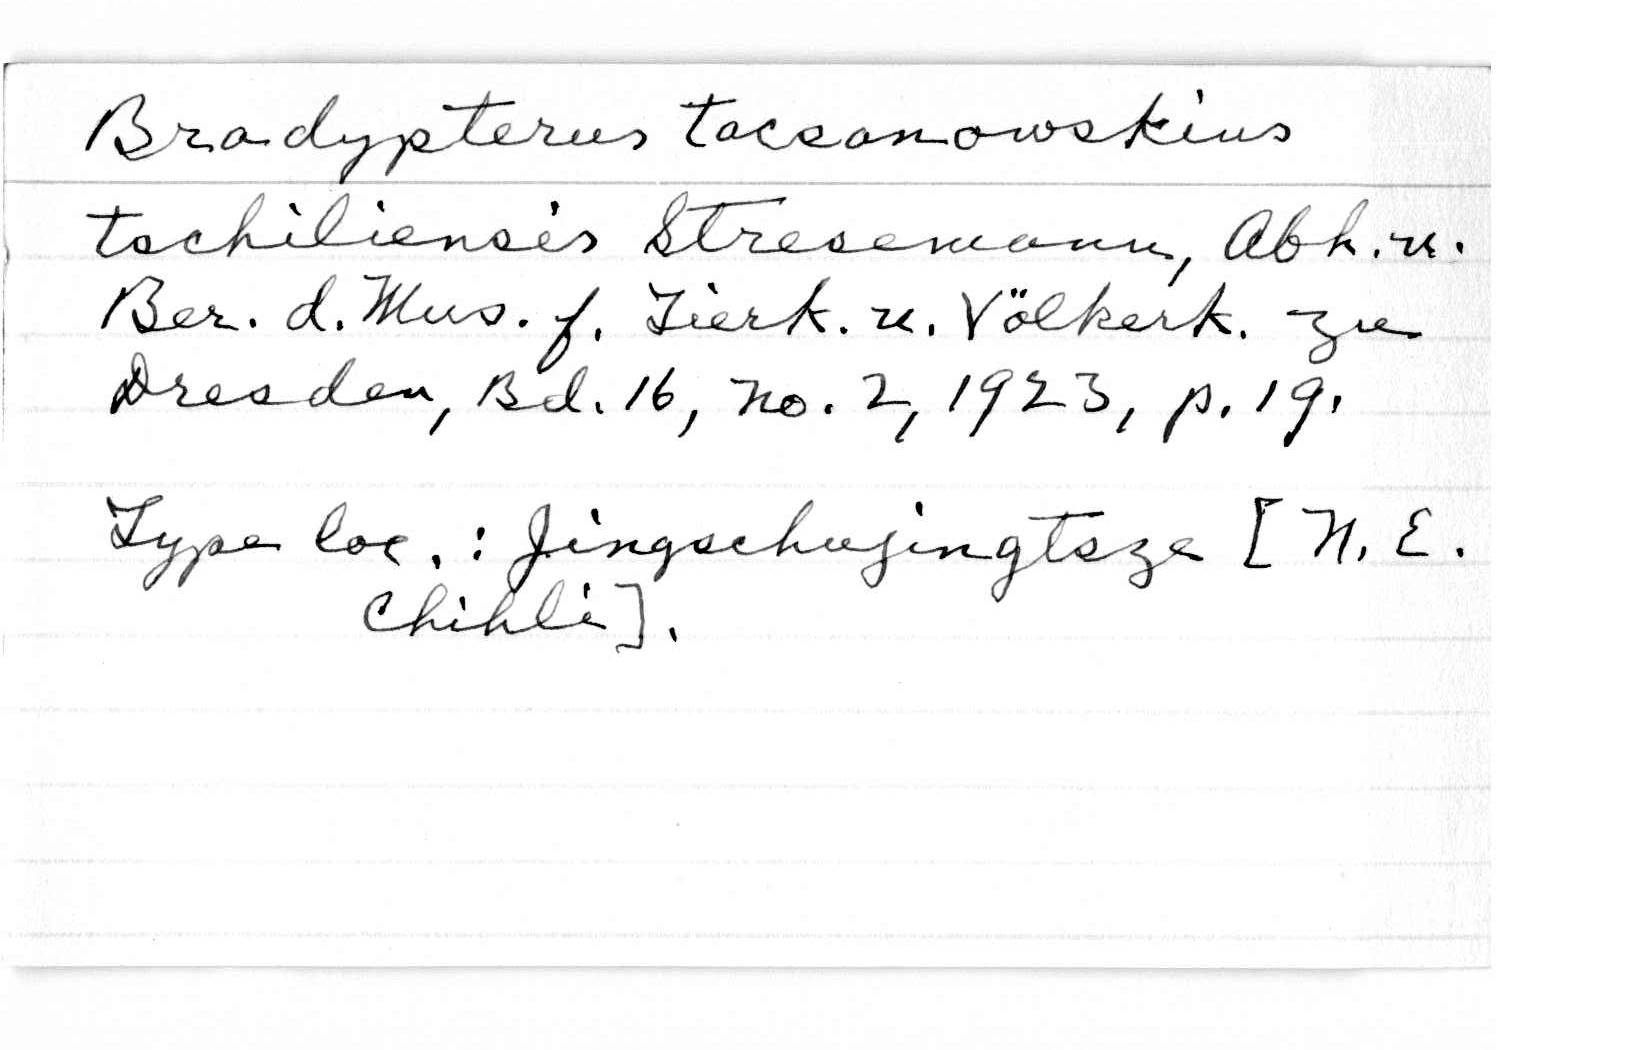 Bradypterus tacsanowskius
tschiliensis Stresemann, Abh. u.
Ber. d. Mus. f. Tierk. u. Völkerk. zu
Dresden, Bd. 16, no. 2, 1923, p. 19.
Type loc. : Jingschujingtsze [N. E.
Chihli].